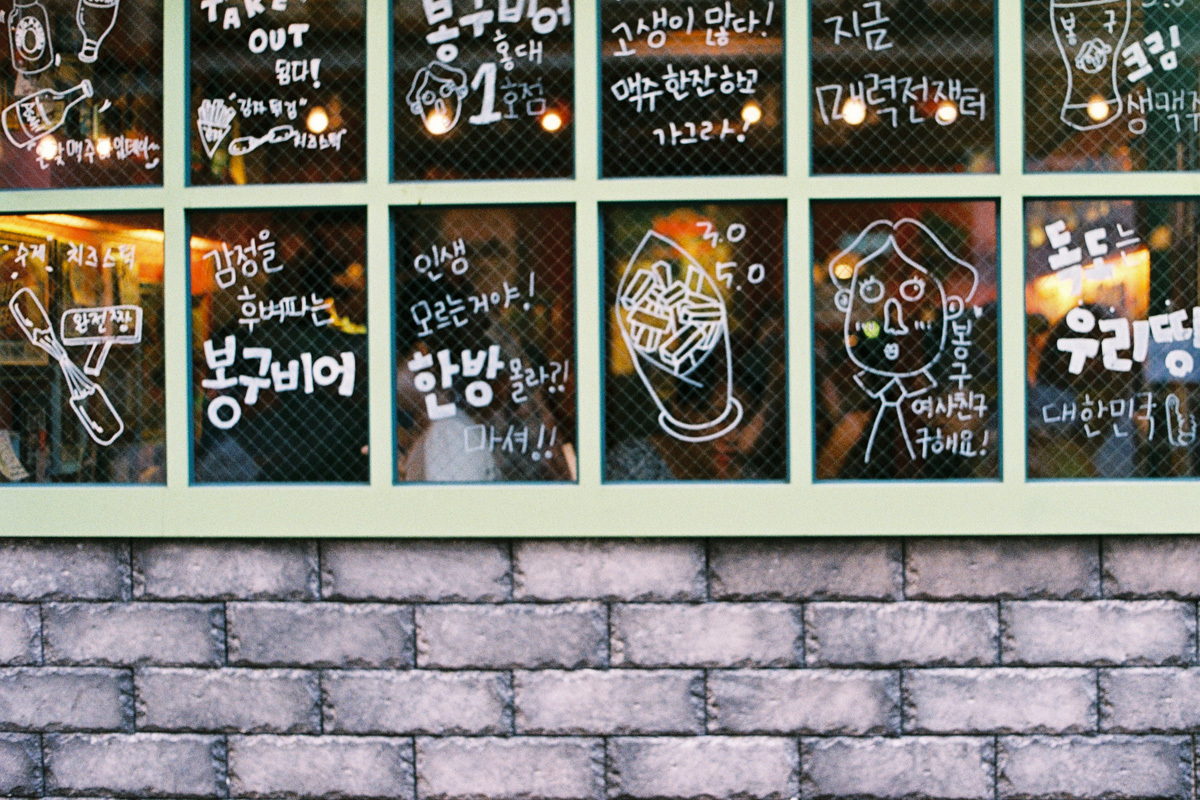 TAKE
OUT
됩다!
"감자튀김"
치즈스틱"
봉구비어
홍대
1호점
고생이 많다!
맥주 한잔 하고
가그라!
지금
매력전재터
봉구
크림
생맥주
"수제 치즈스틱
왕전짱
감정을
후벼파는
봉구비어
인생
모르는거야!
한방 몰라?!
마셔!!
3.0
5.0
봉구
여사친구
구해요!
독도는
우리땅
대한민국